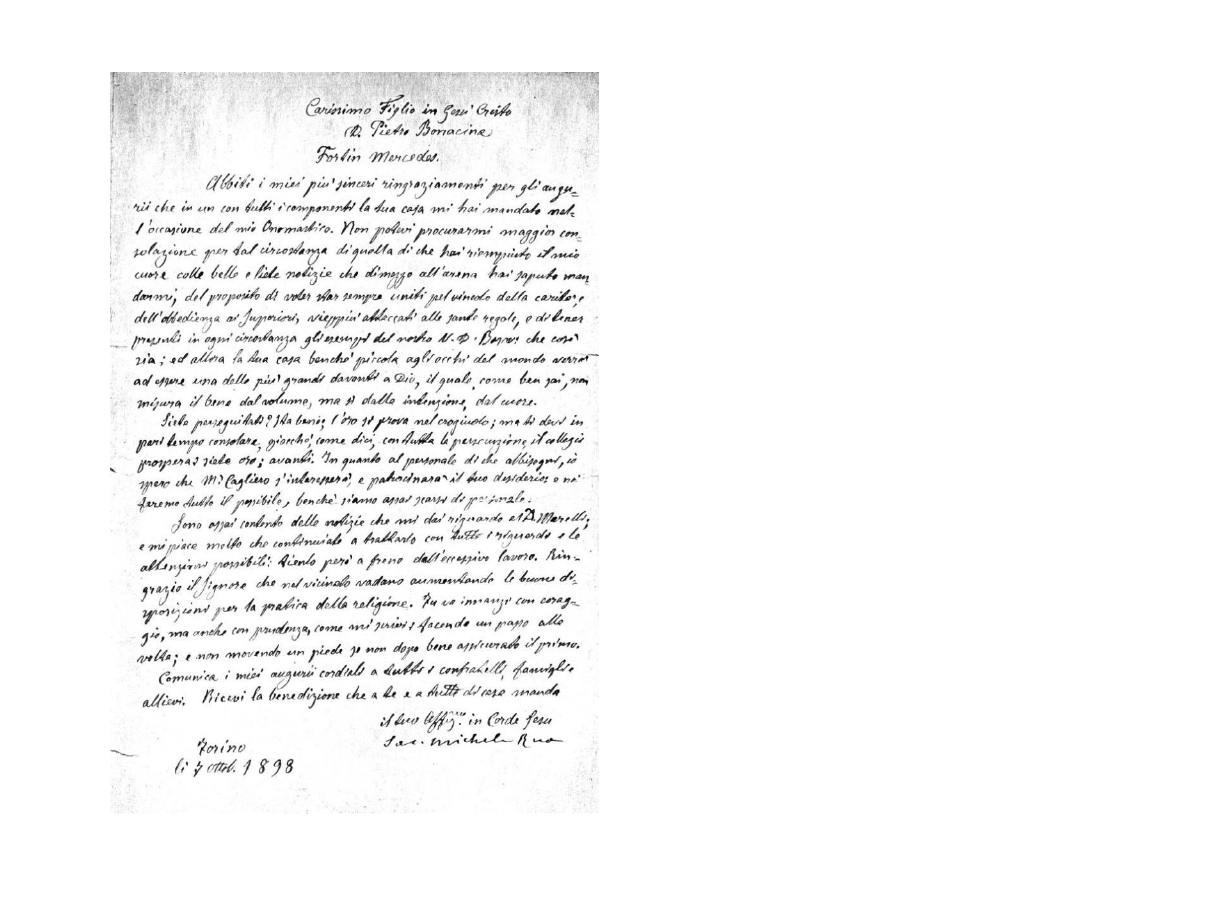 Carissimo Figlio in Gesù Cristo
D. Pietro Bonacina
Fortin Mercedes.
Abbiti i miei più sinceri ringraziamenti per gli augu=
rii che in un con tutti i componenti la tua casa mi hai mandato nel=
l'occasione del mio Onomastico. Non potevi procurarmi maggior con=
solazione per tal circostanza di quella di che hai riempiuto il mio
cuore colle belle e liete notizie che di mezzo all'arena hai saputo man
darmi, del proposito di voler star sempre uniti pel vincolo della carità, e
dell'obbedienza ai Superiori, vieppiù attaccati alle sante regole, e di tener
presenti in ogni circostanza gli esempi del nostro V. D. Bosco: che così
sia; ed allora la tua casa benchè piccola agli occhi del mondo verrà
ad essere una delle più grandi davanti a Dio, il quale, come ben sai, non
misura il bene dal volume, ma sì dalla intenzione, dal cuore.
Siete perseguitati? Sta bene; l'oro si prova nel crogiuolo; ma ti devi in
pari tempo consolare, giacchè, come dici, con tutta la persecuzione, il collegio
prospera: siete oro; avanti. In quanto al personale di che abbisogni, io
spero che Mr. Cagliero s'interesserà, e patrocinerà il tuo desiderio: e noi
faremo tutto il possibile, benchè siamo assai scarsi di personale.
Sono assai contento delle notizie che mi dai riguardo a D. Marelli;
e mi piace molto che continuiate a trattarlo con tutti i riguardi e le
attenzioni possibili: tienlo però a freno dall'eccessivo lavoro. Rin=
grazio il Signore che nel vicinato vadano aumentando le buone di=
sposizioni per la pratica della religione. Tu va innanzi con corag=
gio, ma anche con prudenza, come mi scrivi: facendo un passo alla
volta; e non movendo un piede se non dopo bene assicurato il primo.
Comunica i miei augurii cordiali a tutti i confratelli, famigli e
allievi. Ricevi la benedizione che a te e a tutti di casa manda
il tuo aff.mo in Corde Jesu
Sac. Michele Rua
Torino
li 7 ottob. 1898